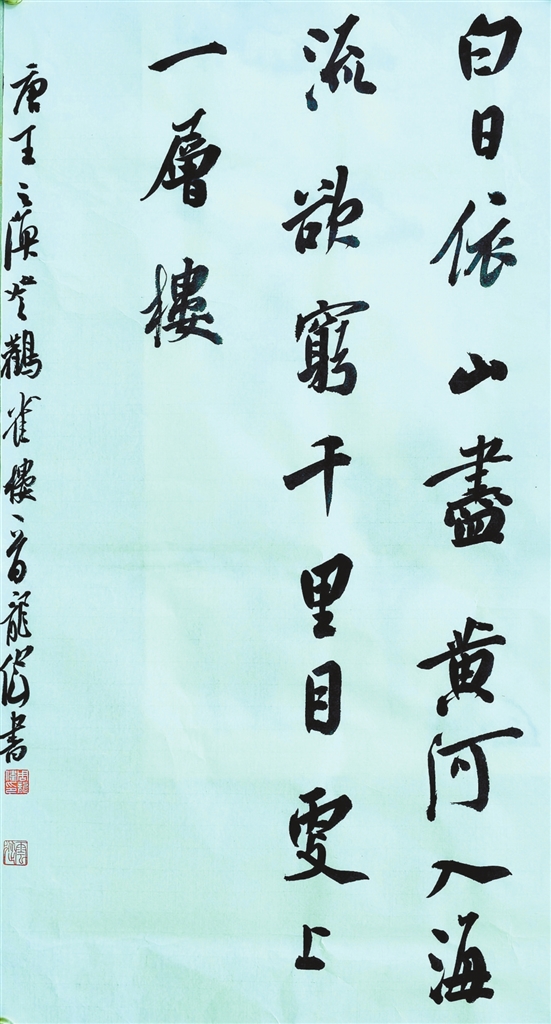 白日依山盡黄河入海
流欲窮千里目更上
一層樓
唐王之渙登鸛雀樓一首龍書